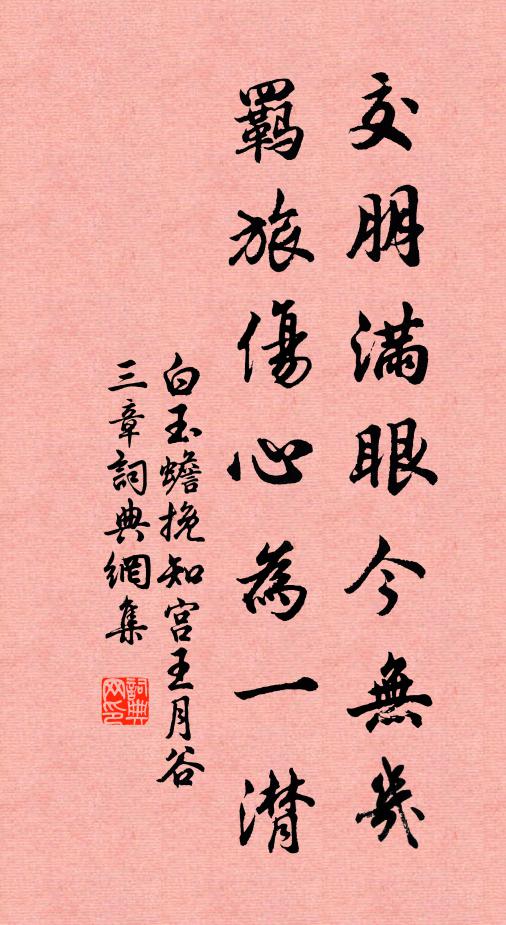 交朋滿眼今無幾
羈旅傷心為一潸
白玉蟾挽知宮王月谷
三章詞典網集
詞典网印